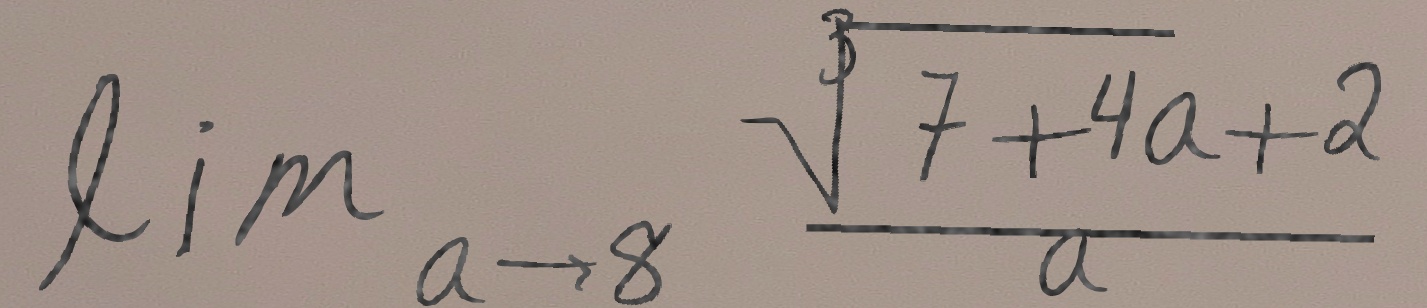 \lim_{a \to 8} \frac{\sqrt[3]{7+4a}+2}{a}